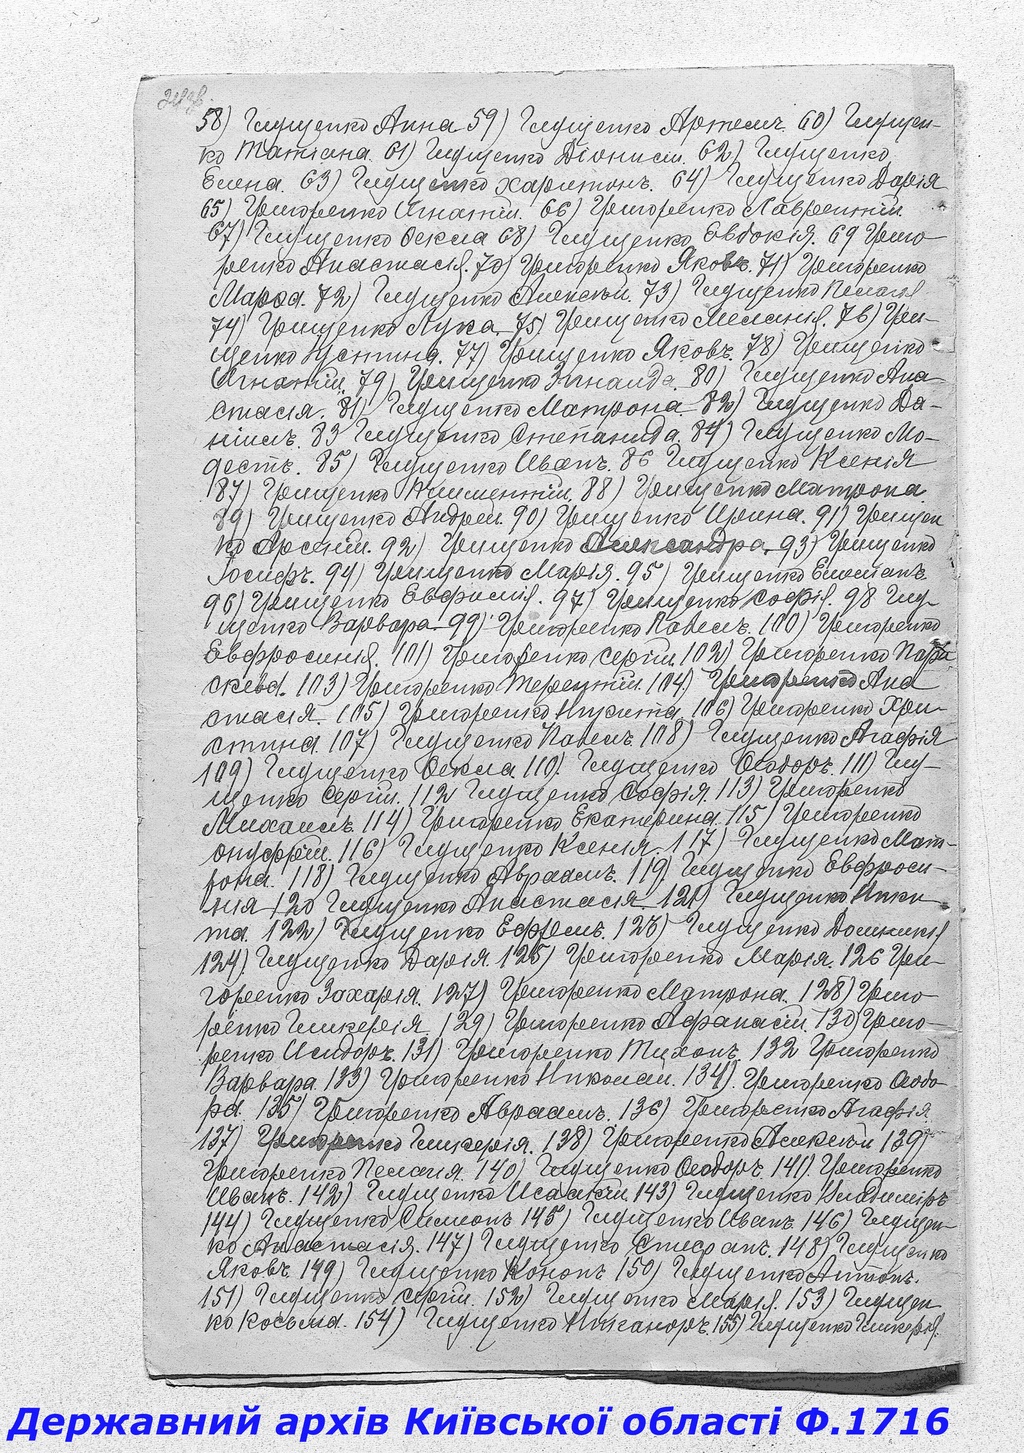 58) Глущенко Анна 59) Глущенко Артемъ. 60) Глущен-
ко Татіана. 61) Глущенко Діонисій. 62) Глущенко
Елена. 63) Глущенко Харитонъ. 64) Глущенко Дарія
65) Григоренко Игнатій. 66) Григоренко Лаврентій.
67) Глущенко Ѳекла 68) Глущенко Евдокія. 69 Григо-
ренко Анастасія. 70) Григоренко Яковъ. 71) Григоренко
Марѳа. 72) Глущенко Алексѣй. 73) Глущенко Пелагія
74) Грищенко Лука. 75) Грищенко Меланія. 76) Гри-
щенко Устина. 77) Грищенко Яковъ. 78) Грищенко
Игнатій. 79) Грищенко Зинаида. 80) Глущенко Ана-
стасія. 81) Глущенко Матрона. 82) Глущенко Да-
ніилъ. 83 Глущенко Степанида. 84) Глущенко Мо-
дестъ. 85) Глущенко Иванъ. 86 Глущенко Ксенія
87) Грищенко Климентій. 88) Грищенко Матрона
89) Грищенко Андрей. 90) Грищенко Ирина. 91) Грищен
ко Арсеній. 92) Грищенко Александра. 93) Грищенко
Іосифъ. 94) Грищенко Марія. 95) Грищенко
96) Грищенко Евфимія. 97) Грищенко Софія. 98 Глу-
щенко Варвара. 99) Григоренко Павелъ. 100) Григоренко
Евфросинія. 101) Григоренко Сергій 102) Григоренко Пара
скева. 103) Григоренко Терентій. 104) Григоренко Ана
стасія. 105) Григоренко Никита. 106) Григоренко Хри-
стина. 107) Глущенко Павелъ 108) Глущенко Агафія
109) Глущенко Ѳекла. 110) Глущенко Ѳеодоръ. 111) Глу-
щенко Сергій. 112 Глущенко Софія. 113) Григоренко
Михаилъ. 114) Григоренко Екатерина. 115) Григоренко
Онуфрій. 116) Глущенко Ксенія. 117) Глущенко Мат-
рона. 118) Глущенко Авраамъ. 119) Глущенко Евфроси-
нія 120 Глущенко Анастасія 121) Глущенко Ники-
та. 122) Глущенко Ефремъ. 123) Глущенко Домникія
124) Глущенко Дарія. 125) Григоренко Марія. 126 Гри-
горенко Захарія. 127) Григоренко Матрона. 128) Григо-
ренко Гликерія. 129) Григоренко Афанасій. 130) Григо-
ренко Исидоръ. 131) Григоренко Тихонъ. 132 Григоренко
Варвара. 133) Григоренко Николай. 134) Григоренко Ѳеодо-
ра. 135) Григоренко Авраамъ. 136) Григоренко Агафія
137) Григоренко Гликерія. 138) Григоренко Алексѣй 139)
Григоренко Пелагія. 140) Глущенко Ѳеодоръ. 141) Григоренко
Иванъ. 142) Глущенко Исаакій. 143) Глущенко Владиміръ
144) Глущенко Симеонъ 145) Глущенко Иванъ. 146) Глущен-
ко Анастасія. 147) Глущенко Стефанъ. 148) Глущенко
Яковъ. 149) Глущенко Кононъ 150) Глущенко Антонъ.
151) Глущенко Сергій. 152) Глущенко Марія. 153) Глущен
ко Косьма. 154) Глущенко Никаноръ. 155) Глущенко Гликерія.
Державний архів Київської області Ф.1716